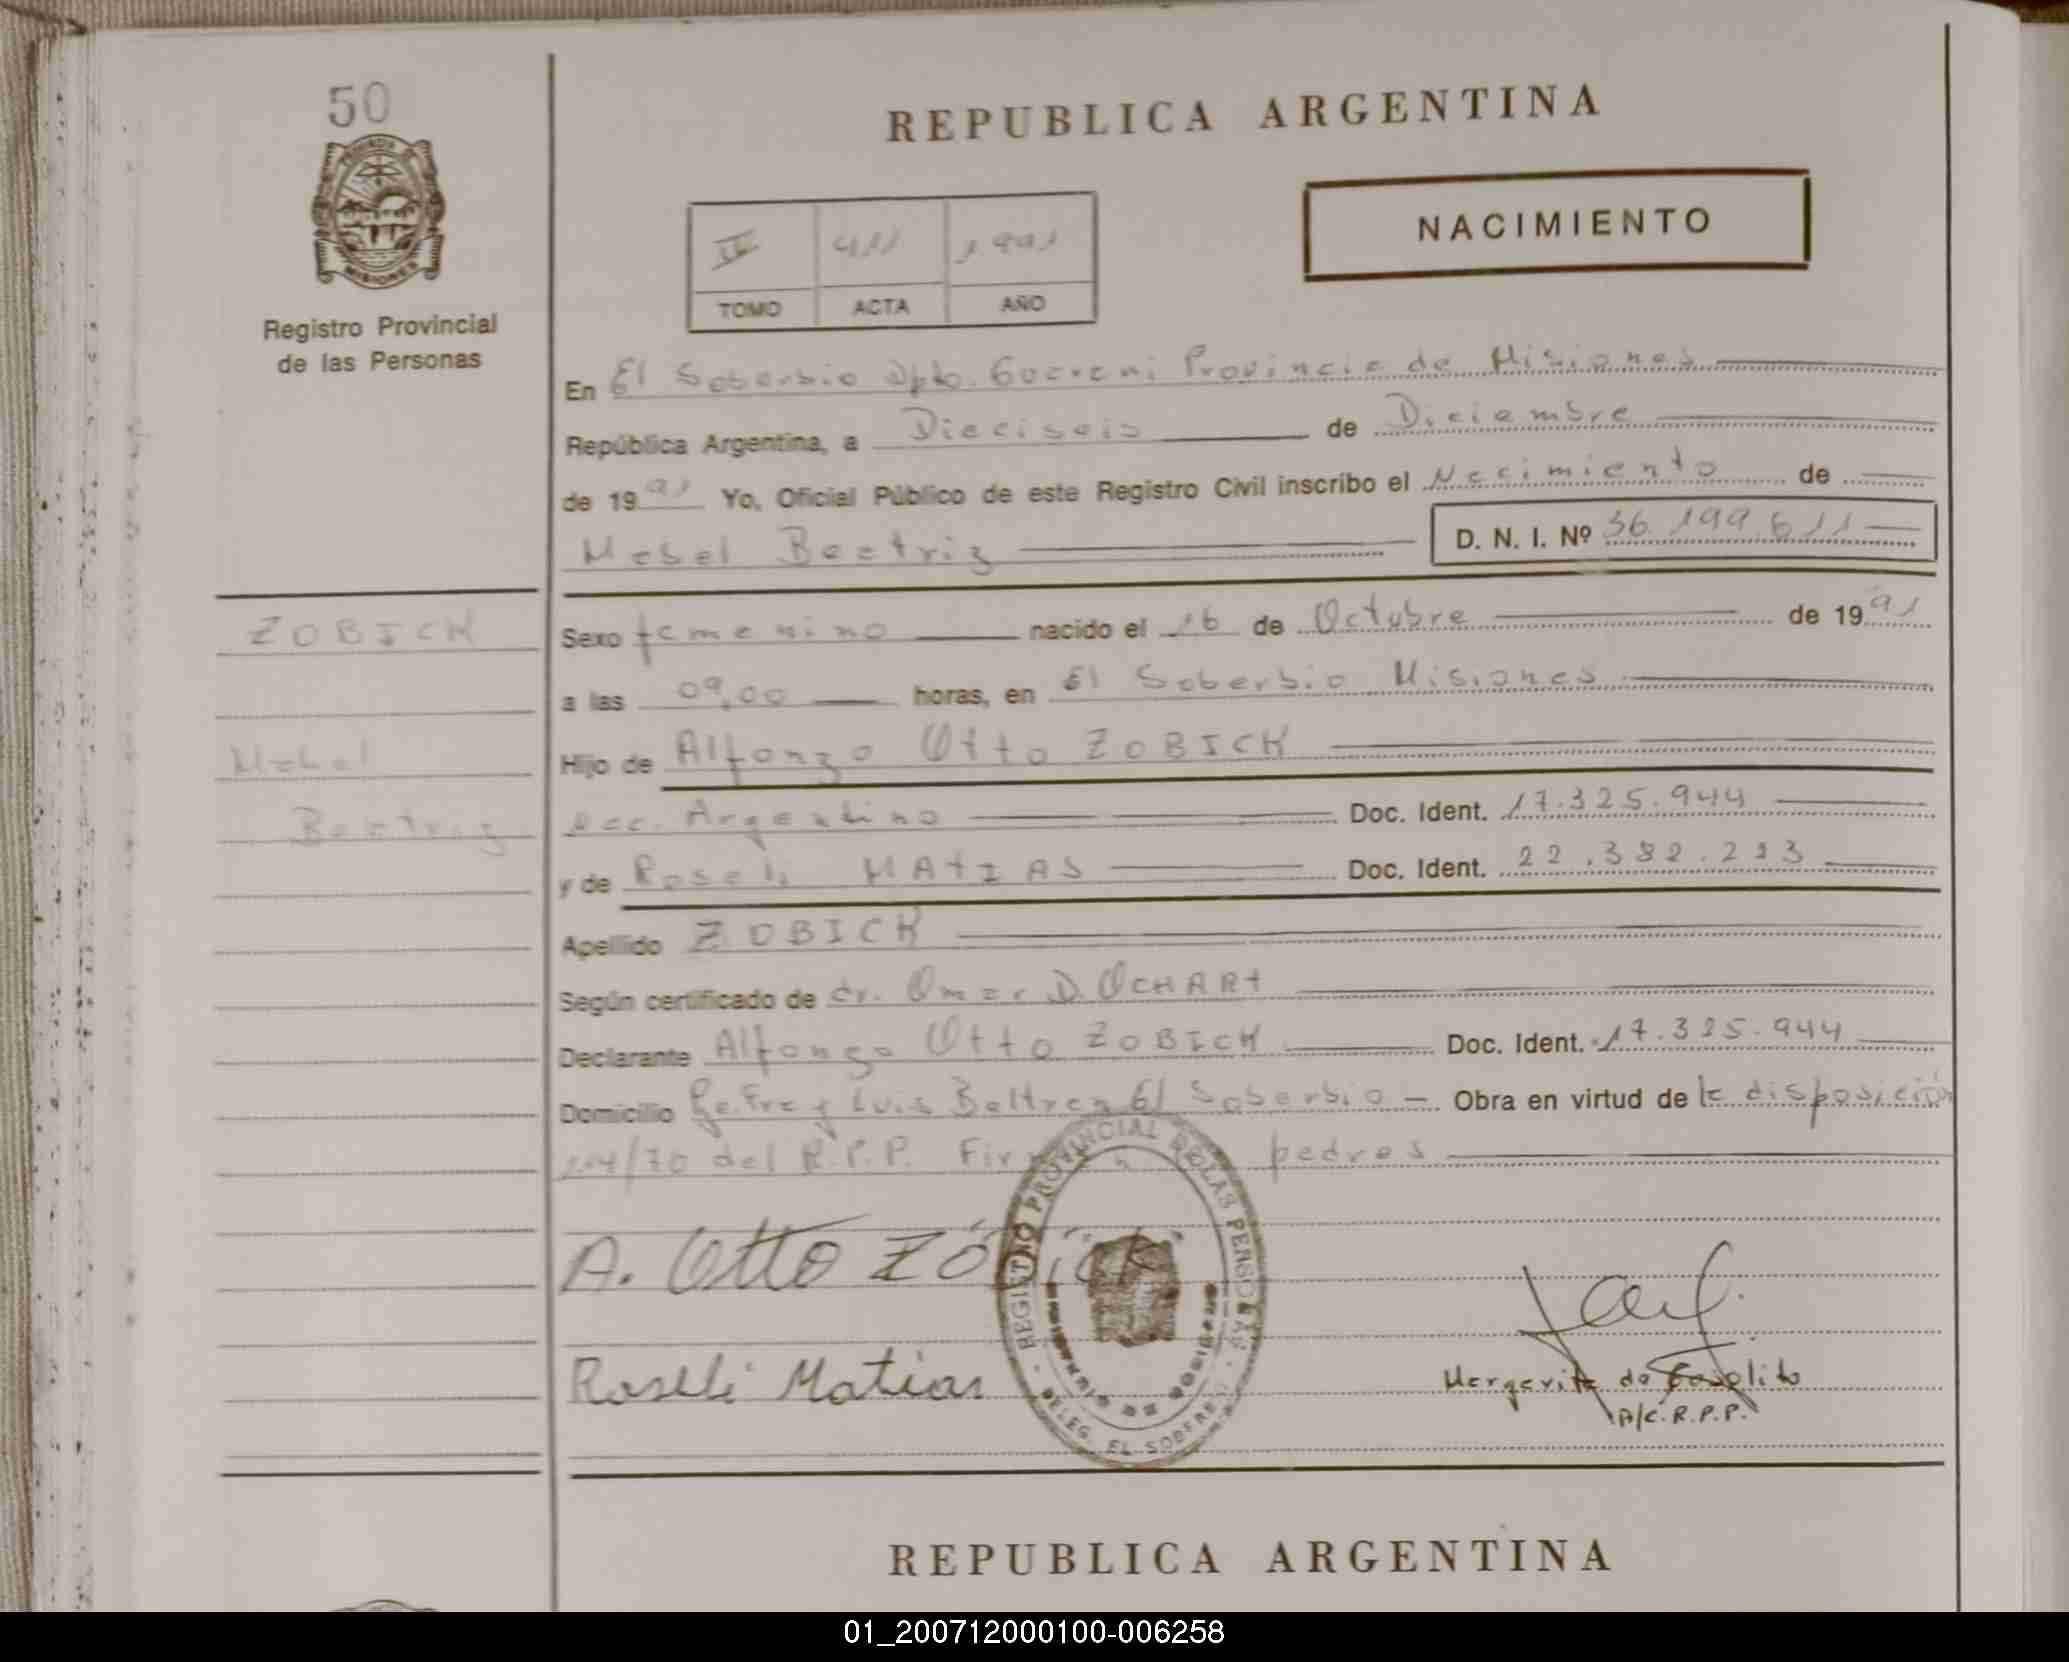 50
REPUBLICA ARGENTINA
PROVINCIA DE
MISIONES
Registro Provincial
de las Personas
NACIMIENTO
411 1991
TOMO ACTA AÑO
En El Soberbio Dpto. Guarani Provincia de Misiones
República Argentina, a Dieciseis de Diciembre
de 1991 Yo, Oficial Público de este Registro Civil inscribo el Nacimiento de
Mabel Beatriz D. N. I. Nº 36.199.611
ZOBICK
Sexo femenino nacido el 16 de Octubre de 1991
a las 09,00 horas, en El Soberbio Misiones
Mabel
Hijo de Alfonzo Otto ZOBICK
Beatriz
nac. Argentino Doc. Ident. 17.325.944
y de Roseli MAtIAS Doc. Ident. 22.382.223
Apellido ZOBICK
Según certificado de dr. Omar D. OCHARt
Declarante Alfonzo Otto ZOBICK Doc. Ident. 17.325.944
Domicilio Fray Luis Beltran El Soberbio Obra en virtud de la disposición
204/70 del R.P.P. padres
A. Otto
Roseli Matias
REGISTRO PROVINCIAL DE LAS PERSONAS
DELEG. EL SOBERBIO
Margarita da
A/C. R.P.P.
REPUBLICA ARGENTINA
01_200712000100-006258